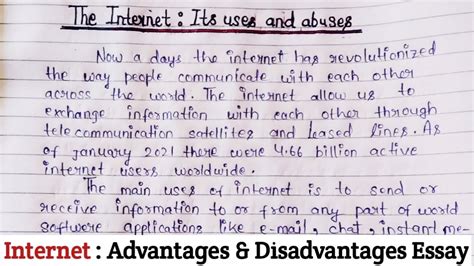 The Internet : Its uses and abuses
Now a days the internet has revolutionized
the way people communicate with each other
across the world. The internet allow us to
exchange information with each other through
telecommunication satellites and leased lines. As
of january 2021 there were 4.66 billion active
internet users worldwide.
The main uses of internet is to send or
receive information to or from any part of world
software applications like e-mail, chat, instant me-
Internet : Advantages & Disadvantages Essay